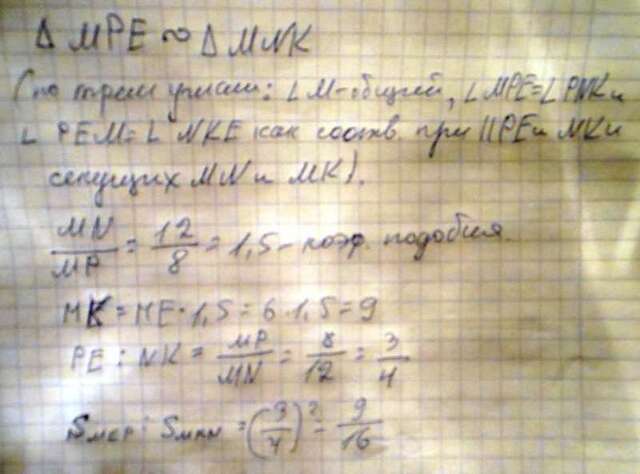 Δ MPE ∾ Δ MNK
(по трем углам: ∠ M-общий, ∠ MPE=∠ PNK и
∠ PEM=∠ NKE как соотв. при || PE и NK и
секущих MN и MK).
MN/MP = 12/8 = 1,5 - коэф. подобия.
MK = ME · 1,5 = 6 · 1,5 = 9
PE : NK = MP/MN = 8/12 = 3/4
S MEP : S MKN = (3/4)² = 9/16